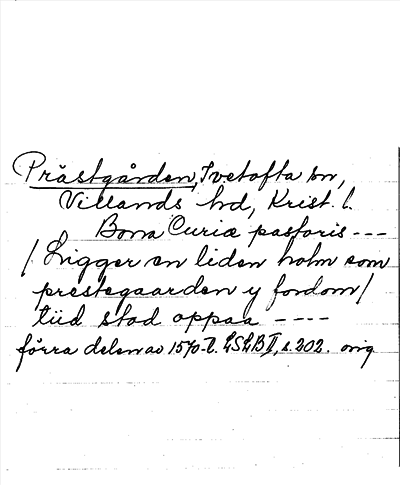 Prästgården, Ivetofta sn,
Villands hd, Krist. l.
Bona Curiæ pastoris ---
/ Ligger en liden holm som
prestegaarden y fordom /
tiid stod oppaa ----
förra delen av 1570-t. LSLB II, s. 202. orig